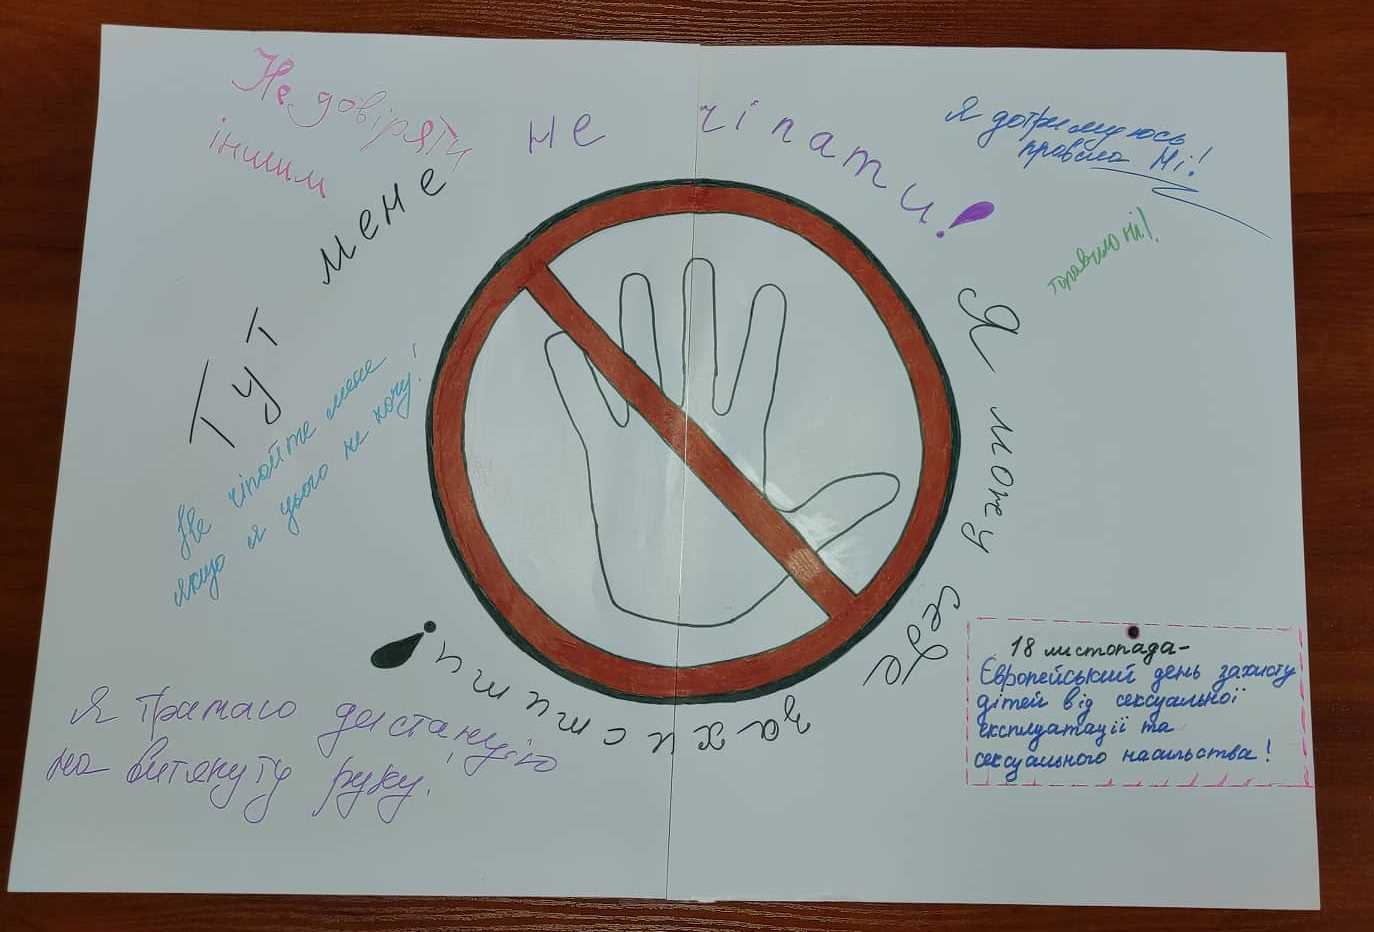 Не довіряти
іншим
Тут мене не чіпати!
Я дотримуюсь
правила Ні!
правило ні!
Не чіпайте мене
якщо я цього не хочу!
Я можу себе захистити!
Я тримаю дистанцію
на витянуту руку!
18 листопада-
Європейський день захисту
дітей від сексуальної
експлуатації та
сексуального насильства!